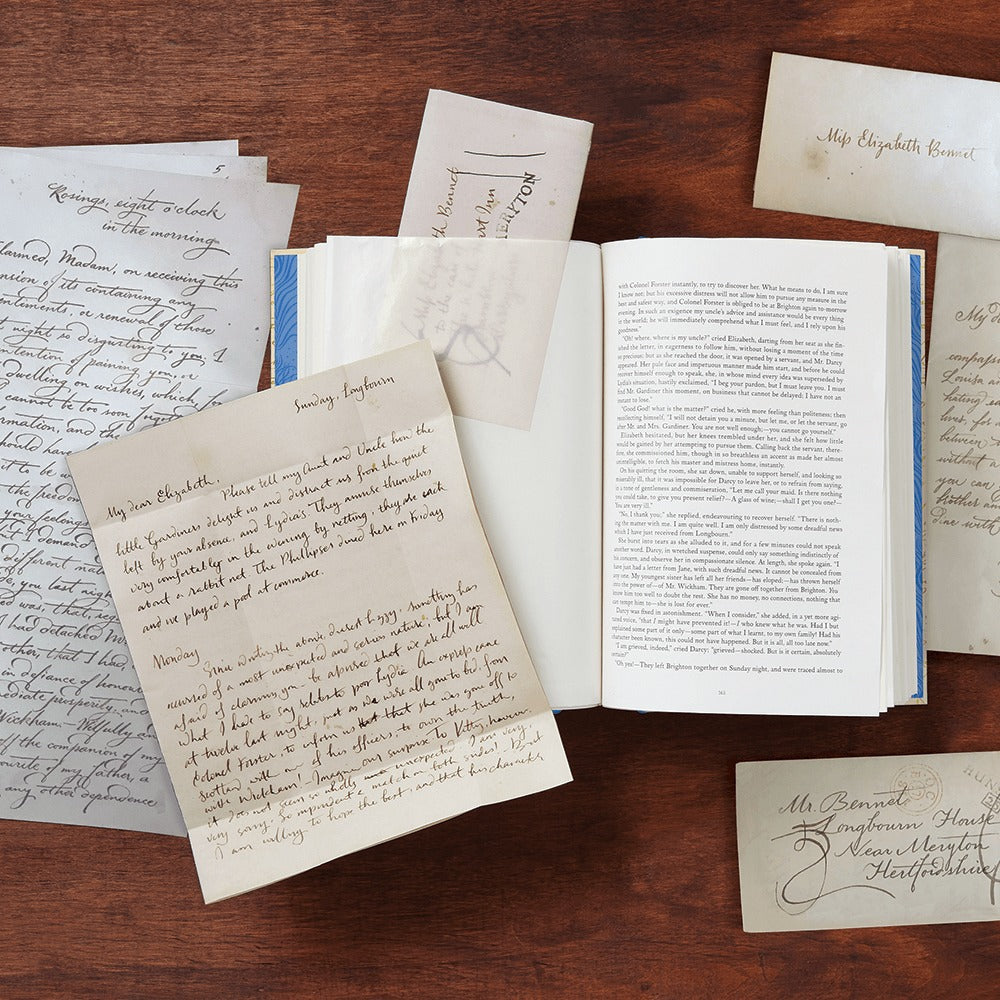 Rosings, eight o'clock
in the morning
5
larmed, Madam, on receiving this
of its containing any
entiments, or renewal of those
night so disgusting to you. I
ntention of paining you, or
dwelling on wishes, which, for
cannot be too soon
rmation, and the
hould have
it to be
the freedom
demand
different
you last night
was, that,
had detached
other, that I had,
in defiance of honour
prosperity, and
Wickham.— Wilfully and
of the companion of my
vourite of my father, a
any other dependence
th Bennet
Inn
MERYTON
Miss Elizabeth Bennet
Sunday, Longbourn
My dear Elizabeth,
Please tell my Aunt and Uncle how the
little Gardiners delight us and distract us from the quiet
left by your absence, and Lydia's. They amuse themselves
very comfortably in the evening by netting; they are each
about a rabbit net. The Phillipses dined here on Friday
and we played a pool at commerce.
Monday
Since writing the above, dearest Lizzy, something has
occurred of a most unexpected and serious nature; but I am
afraid of alarming you – be assured that we are all well.
What I have to say relates to poor Lydia. An express came
at twelve last night, just as we were all gone to bed, from
Colonel Forster, to inform us that she was gone off to
Scotland with one of his officers; to own the truth,
with Wickham! Imagine our surprise. To Kitty, however,
it does not seem so wholly unexpected. I am very,
very sorry. So imprudent a match on both sides! But
I am willing to hope the best, and that his character
with Colonel Forster instantly, to try to discover her. What he means to do, I am sure
I know not; but his excessive distress will not allow him to pursue any measure in the
best and safest way, and Colonel Forster is obliged to be at Brighton again to-morrow
evening. In such an exigence my uncle's advice and assistance would be every thing
in the world; he will immediately comprehend what I must feel, and I rely upon his
goodness."
"Oh! where, where is my uncle?" cried Elizabeth, darting from her seat as she fin-
ished the letter, in eagerness to follow him, without losing a moment of the time
so precious; but as she reached the door, it was opened by a servant, and Mr. Darcy
appeared. Her pale face and impetuous manner made him start, and before he could
recover himself enough to speak, she, in whose mind every idea was superseded by
Lydia's situation, hastily exclaimed, "I beg your pardon, but I must leave you. I must
find Mr. Gardiner this moment, on business that cannot be delayed; I have not an
instant to lose."
"Good God! what is the matter?" cried he, with more feeling than politeness; then
recollecting himself, "I will not detain you a minute, but let me, or let the servant, go
after Mr. and Mrs. Gardiner. You are not well enough;—you cannot go yourself."
Elizabeth hesitated, but her knees trembled under her, and she felt how little
would be gained by her attempting to pursue them. Calling back the servant, there-
fore, she commissioned him, though in so breathless an accent as made her almost
unintelligible, to fetch his master and mistress home, instantly.
On his quitting the room, she sat down, unable to support herself, and looking so
miserably ill, that it was impossible for Darcy to leave her, or to refrain from saying,
in a tone of gentleness and commiseration, "Let me call your maid. Is there nothing
you could take, to give you present relief?—A glass of wine;—shall I get you one?—
You are very ill."
"No, I thank you;" she replied, endeavouring to recover herself. "There is noth-
ing the matter with me. I am quite well. I am only distressed by some dreadful news
which I have just received from Longbourn."
She burst into tears as she alluded to it, and for a few minutes could not speak
another word. Darcy, in wretched suspense, could only say something indistinctly of
his concern, and observe her in compassionate silence. At length, she spoke again. "I
have just had a letter from Jane, with such dreadful news. It cannot be concealed from
any one. My youngest sister has left all her friends—has eloped;—has thrown herself
into the power of—of Mr. Wickham. They are gone off together from Brighton. You
know him too well to doubt the rest. She has no money, no connections, nothing that
can tempt him to—she is lost for ever."
Darcy was fixed in astonishment. "When I consider," she added, in a yet more agi-
tated voice, "that I might have prevented it!—I who knew what he was. Had I but
explained some part of it only—some part of what I learnt, to my own family! Had his
character been known, this could not have happened. But it is all, all too late now."
"I am grieved, indeed," cried Darcy; "grieved—shocked. But is it certain, absolutely
certain?"
"Oh yes!—They left Brighton together on Sunday night, and were traced almost to
My d
compass
Louisa a
hating e
lives, for
between
without a
you can
brother an
dine with
Mr. Bennet
Longbourn House
Near Meryton
Hertfordshire